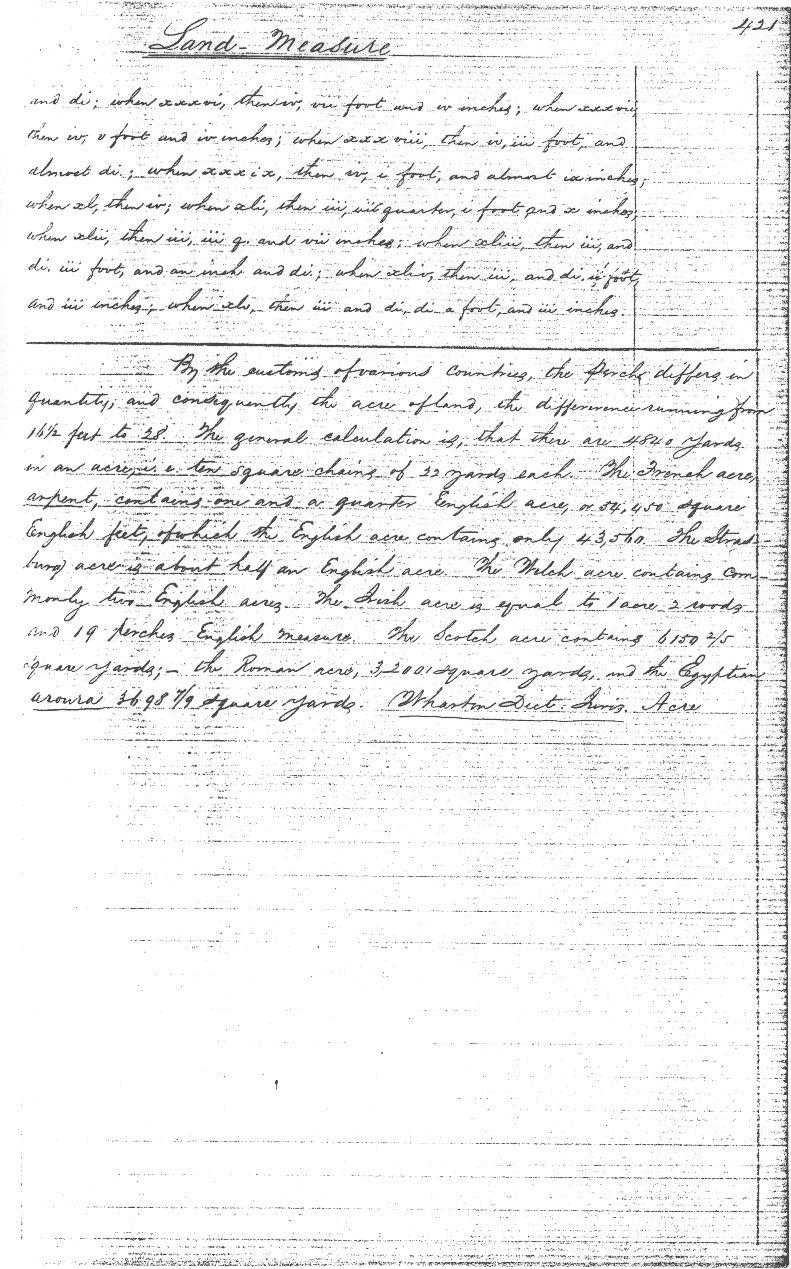 421
Land-Measure
and di; when xxxvi, then iv, vii foot and iv inches; when xxxvii,
then iv, v foot and iv inches; when xxxviii, then iv, iii foot, and
almost di.; when xxxix, then iv, i foot, and almost ix inches;
when xl, then iv; when xli, then iii, iii quarter, i foot and x inches;
when xlii, then iii, iii q. and vii inches; when xliii, then iii, and
di. iii foot, and an inch and di.; when xliv, then iii, and di. ij foot,
and iii inches; when xlv, then iii and di, di a foot, and iii inches.
By the customs of various countries, the Perch differs in
quantity; and consequently the acre of land, the difference running from
16½ feet to 28. The general calculation is, that there are 4840 yards
in an acre, i. e. ten square chains of 22 yards each. The French acre,
arpent, contains one and a quarter English acre, or 54,450 square
English feet, of which the English acre contains only 43,560. The Stras-
burg acre is about half an English acre. The Welch acre contains com-
monly two English acres. The Irish acre is equal to 1 acre 2 roods
and 19 perches English measure. The Scotch acre contains 6150 2/5
square yards;— the Roman acre, 3,200 square yards, and the Egyptian
aroura 3698 7/9 square yards. Wharton Dict. Juris. Acre